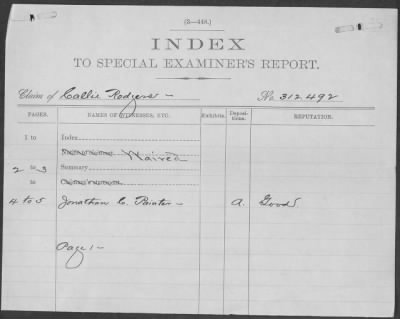 (3—448.)
INDEX
TO SPECIAL EXAMINER'S REPORT.
Claim of Callie Rodgers – No. 312.492
PAGES. NAMES OF WITNESSES, ETC. Exhibits. Deposi-tions. REPUTATION.
1 to Index
Waived
2 to 3 Summary
to
4 to 5 Jonathan C. Painter – A. Good
Page 1 –